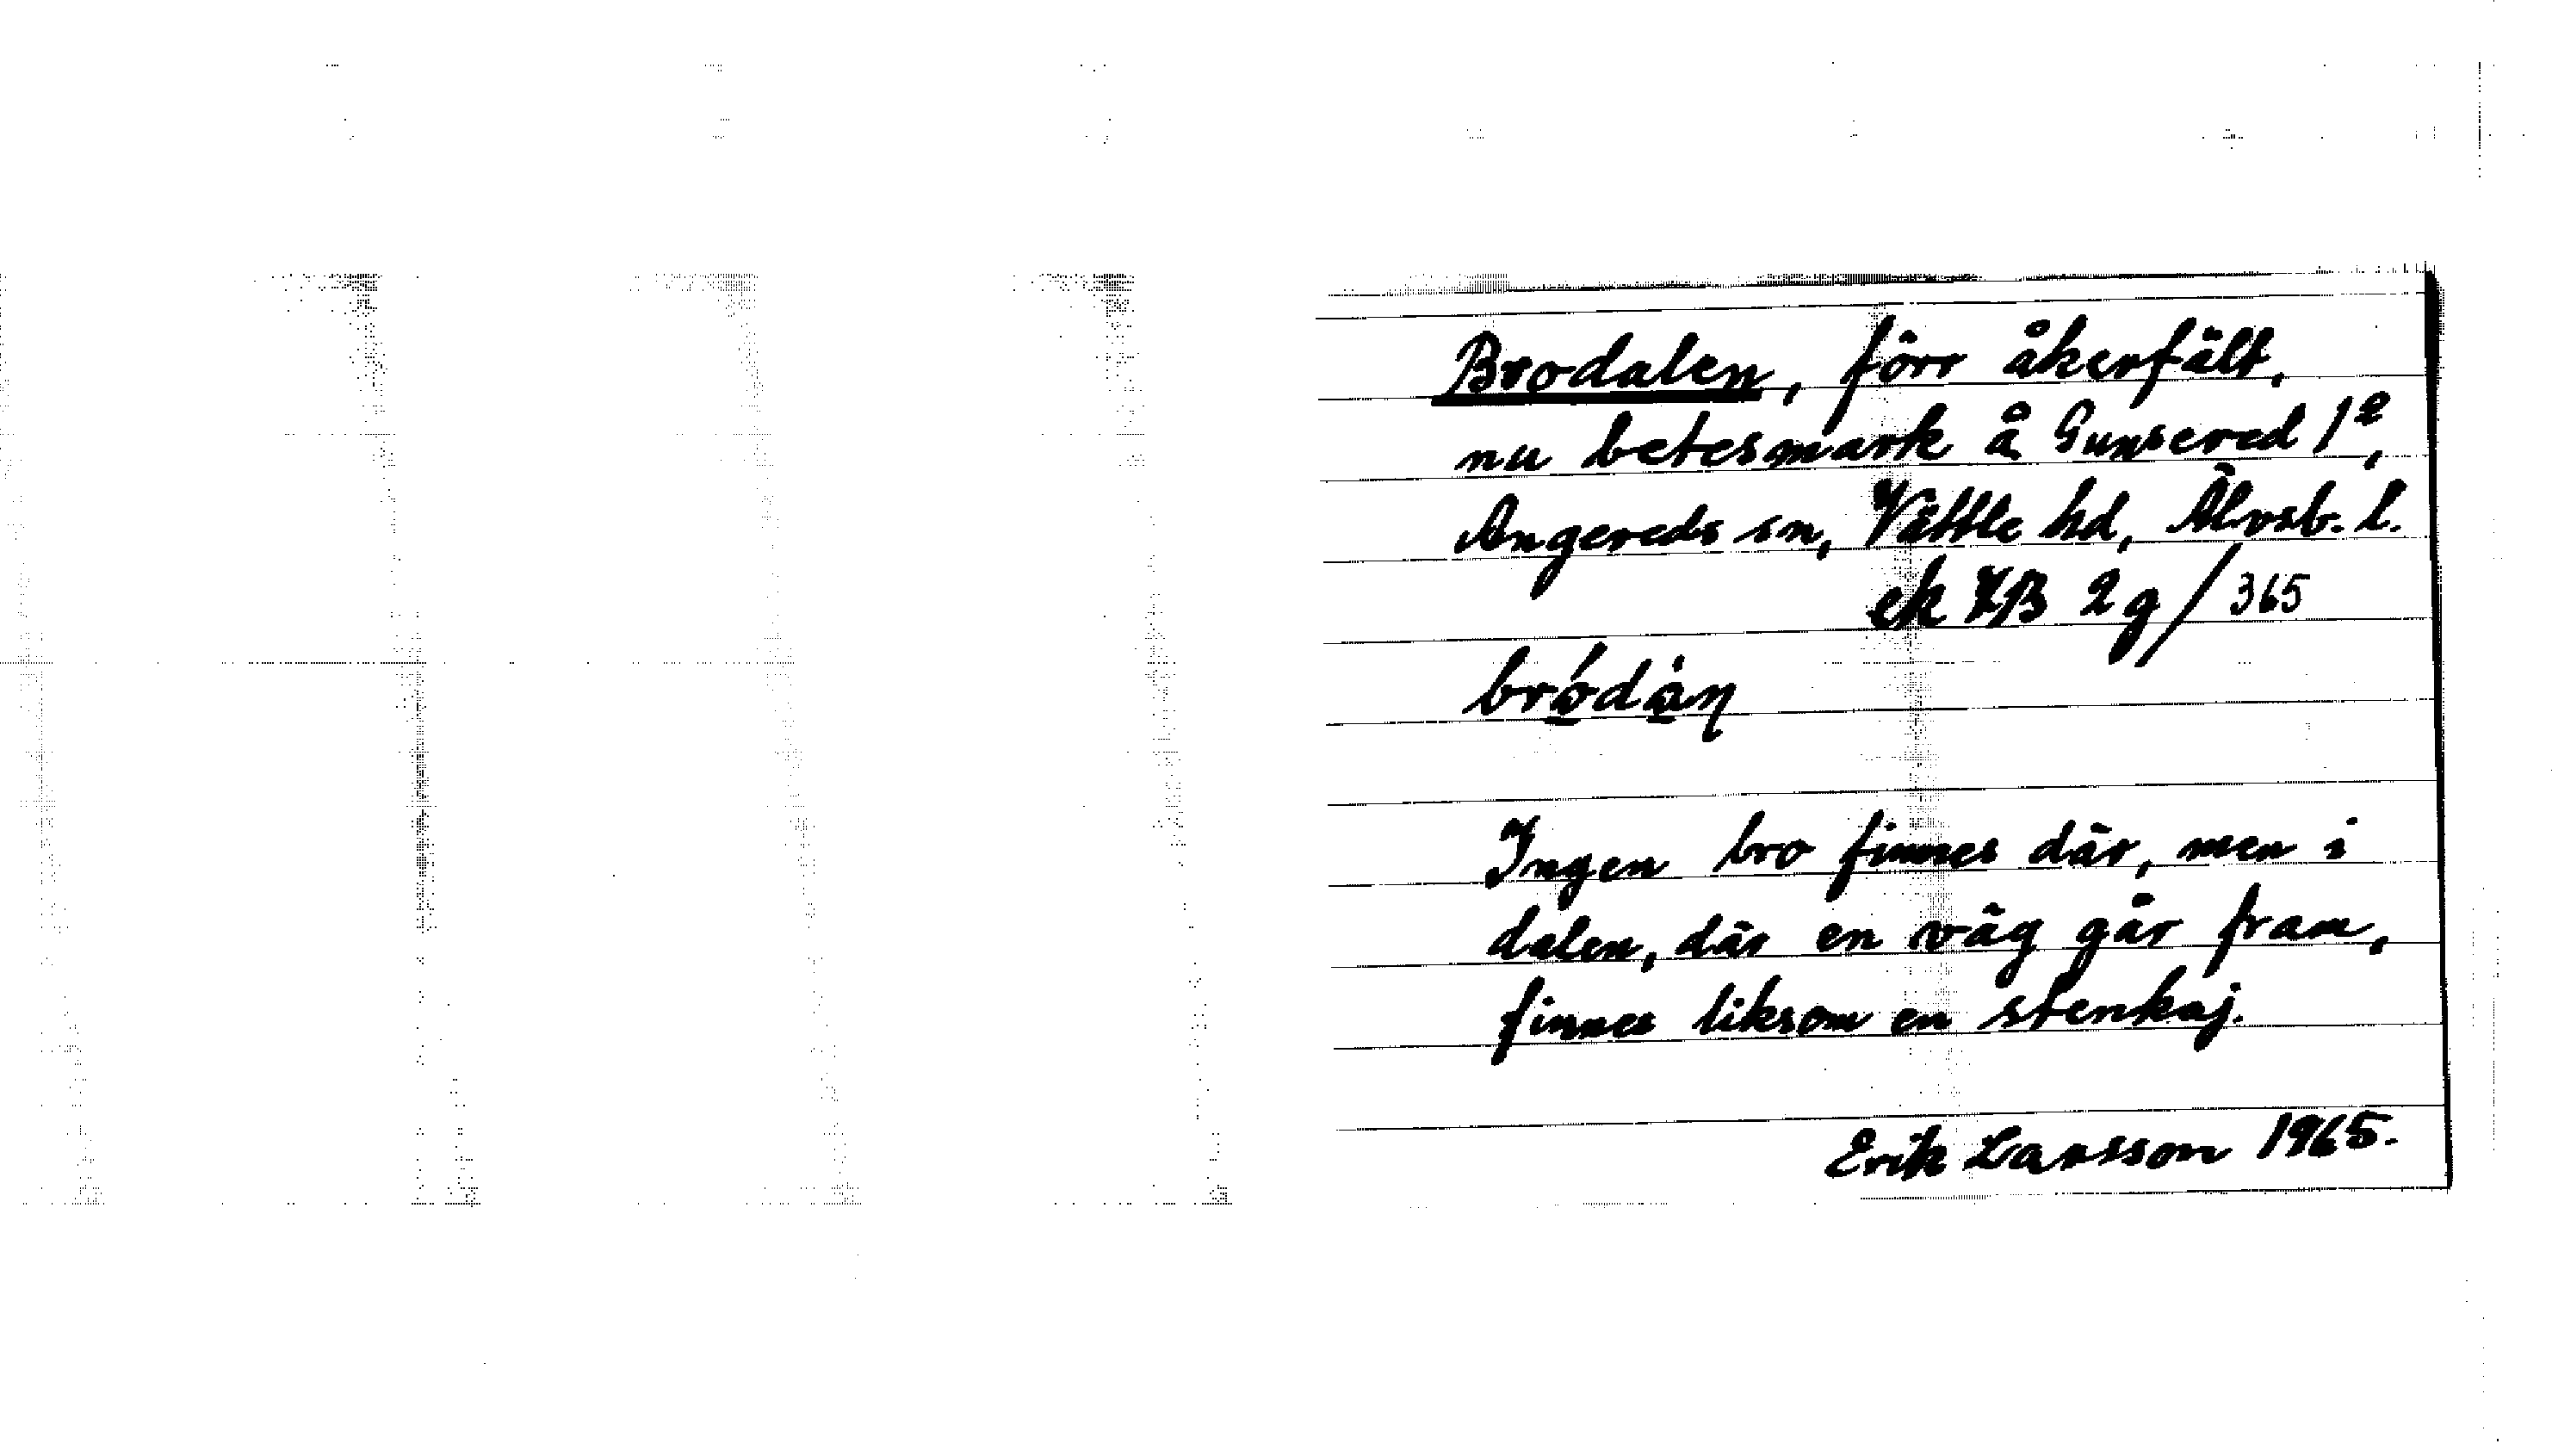 Brodalen, förr åkerfält,
nu betesmark å Gunnered 1²,
Angereds sn, Vättle hd, Älvsb. l.
ek 7B 2g/365
bródàn
Ingen bro finnes där, men i
dalen, där en väg går fram,
finnes liksom en stenkaj.
Erik Larsson 1965.